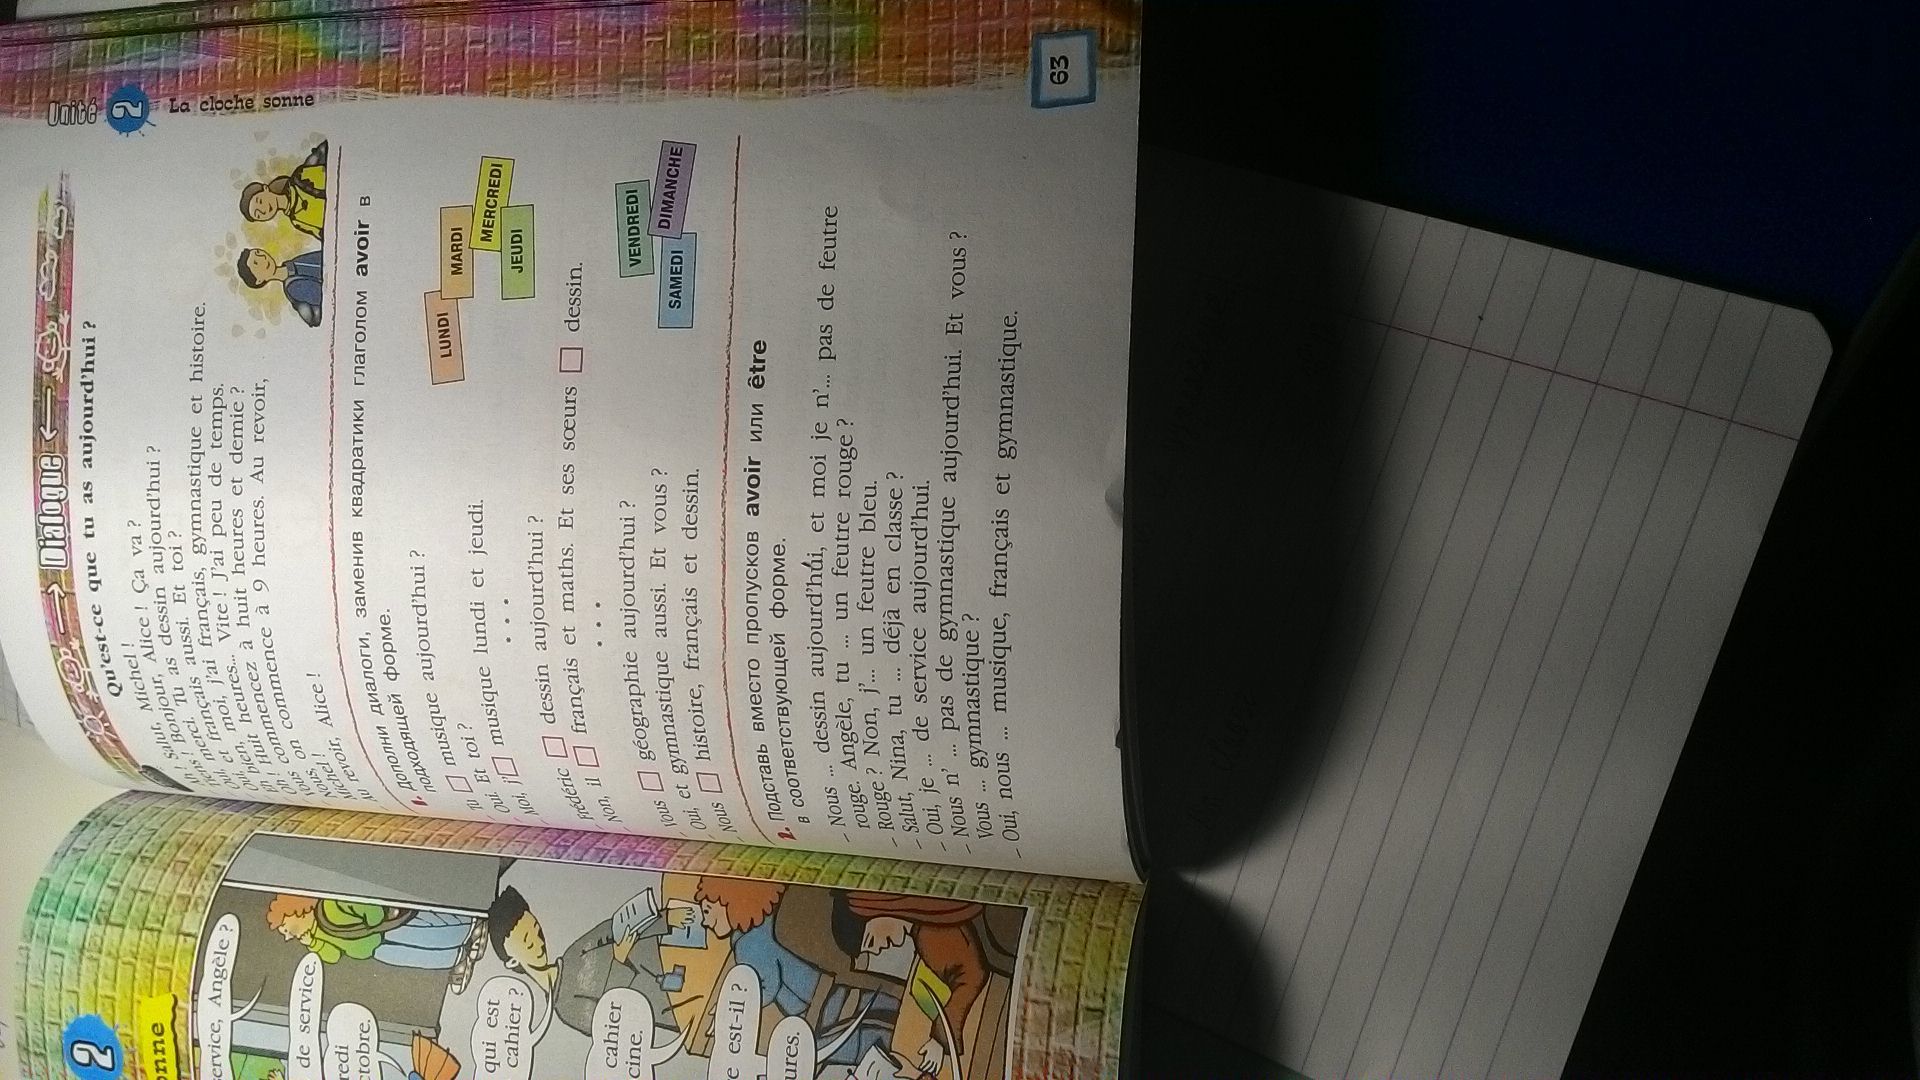 Unité
2
La cloche sonne
Dialogue
Qu'est-ce que tu as aujourd'hui ?
Salut, Michel !
Bonjour, Alice ! Ça va ?
merci. Tu as dessin aujourd'hui ?
français aussi. Et toi ?
et moi, j'ai français, gymnastique et histoire.
heures... Vite ! J'ai peu de temps.
commencez à huit heures et demie ?
on commence à 9 heures. Au revoir,
Michel !
revoir, Alice !
1. Дополни диалоги, заменив квадратики глаголом avoir в
подходящей форме.
Tu □ musique aujourd'hui ?
Oui. Et toi ?
Moi, j'□ musique lundi et jeudi.
• • •
Frédéric □ dessin aujourd'hui ?
Non, il □ français et maths. Et ses sœurs □ dessin.
• • •
Vous □ géographie aujourd'hui ?
Oui, et gymnastique aussi. Et vous ?
Nous □ histoire, français et dessin.
LUNDI
MARDI
MERCREDI
JEUDI
VENDREDI
SAMEDI
DIMANCHE
2. Подставь вместо пропусков avoir или être
в соответствующей форме.
– Nous ... dessin aujourd'hui, et moi je n'... pas de feutre
rouge. Angèle, tu ... un feutre rouge ?
– Rouge ? Non, j'... un feutre bleu.
– Salut, Nina, tu ... déjà en classe ?
– Oui, je ... de service aujourd'hui.
– Nous n' ... pas de gymnastique aujourd'hui. Et vous ?
Vous ... gymnastique ?
– Oui, nous ... musique, français et gymnastique.
63
2
onne
service, Angèle ?
de service.
redi
ctobre.
qui est
cahier ?
cahier
cine.
e est-il ?
ures.